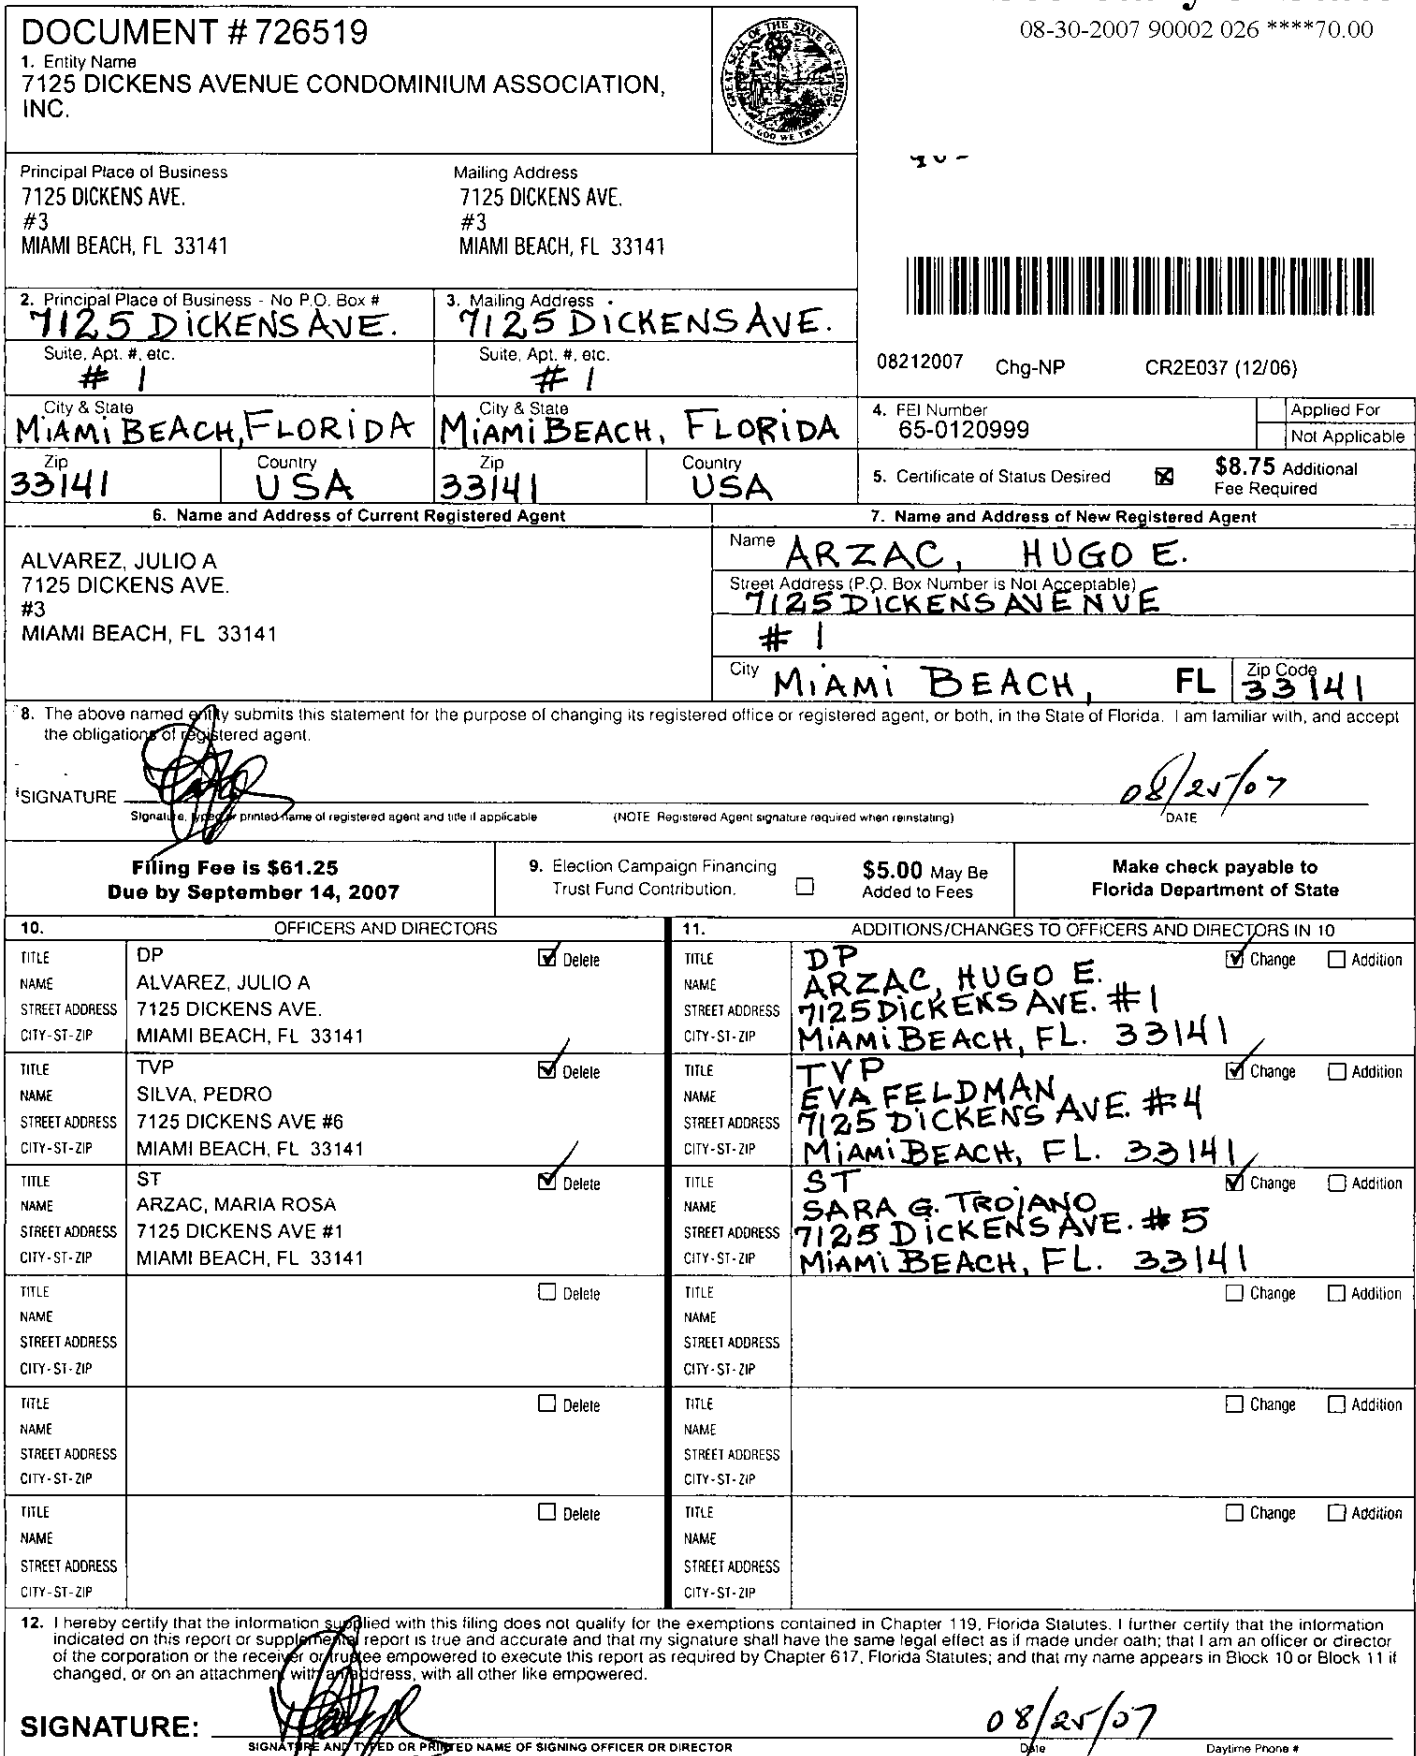 08-30-2007 90002 026 ****70.00
DOCUMENT # 726519
1. Entity Name
7125 DICKENS AVENUE CONDOMINIUM ASSOCIATION,
INC.
GREAT SEAL OF THE STATE OF FLORIDA
IN GOD WE TRUST
Principal Place of Business
7125 DICKENS AVE.
#3
MIAMI BEACH, FL 33141
Mailing Address
7125 DICKENS AVE.
#3
MIAMI BEACH, FL 33141
2. Principal Place of Business - No P.O. Box #
7125 DICKENS AVE.
Suite, Apt. #, etc.
# 1
City & State
MIAMI BEACH, FLORIDA
Zip
33141
Country
USA
3. Mailing Address
7125 DICKENS AVE.
Suite, Apt. #, etc.
# 1
City & State
MIAMI BEACH, FLORIDA
Zip
33141
Country
USA
08212007 Chg-NP CR2E037 (12/06)
4. FEI Number
65-0120999
Applied For
Not Applicable
5. Certificate of Status Desired
$8.75 Additional
Fee Required
6. Name and Address of Current Registered Agent
ALVAREZ, JULIO A
7125 DICKENS AVE.
#3
MIAMI BEACH, FL 33141
7. Name and Address of New Registered Agent
Name ARZAC, HUGO E.
Street Address (P.O. Box Number is Not Acceptable)
7125 DICKENS AVENUE
# 1
City MIAMI BEACH, FL Zip Code 33141
8. The above named entity submits this statement for the purpose of changing its registered office or registered agent, or both, in the State of Florida. I am familiar with, and accept
the obligations of registered agent.
SIGNATURE 08/25/07
Signature, typed or printed name of registered agent and title if applicable (NOTE Registered Agent signature required when reinstating) DATE
Filing Fee is $61.25
Due by September 14, 2007
9. Election Campaign Financing
Trust Fund Contribution.
$5.00 May Be
Added to Fees
Make check payable to
Florida Department of State
10. OFFICERS AND DIRECTORS
TITLE DP Delete
NAME ALVAREZ, JULIO A
STREET ADDRESS 7125 DICKENS AVE.
CITY-ST-ZIP MIAMI BEACH, FL 33141
TITLE TVP Delete
NAME SILVA, PEDRO
STREET ADDRESS 7125 DICKENS AVE #6
CITY-ST-ZIP MIAMI BEACH, FL 33141
TITLE ST Delete
NAME ARZAC, MARIA ROSA
STREET ADDRESS 7125 DICKENS AVE #1
CITY-ST-ZIP MIAMI BEACH, FL 33141
TITLE Delete
NAME
STREET ADDRESS
CITY-ST-ZIP
TITLE Delete
NAME
STREET ADDRESS
CITY-ST-ZIP
TITLE Delete
NAME
STREET ADDRESS
CITY-ST-ZIP
11. ADDITIONS/CHANGES TO OFFICERS AND DIRECTORS IN 10
TITLE DP Change Addition
NAME ARZAC, HUGO E.
STREET ADDRESS 7125 DICKENS AVE. #1
CITY-ST-ZIP MIAMI BEACH, FL. 33141
TITLE TVP Change Addition
NAME EVA FELDMAN
STREET ADDRESS 7125 DICKENS AVE. #4
CITY-ST-ZIP MIAMI BEACH, FL. 33141
TITLE ST Change Addition
NAME SARA G. TROJANO
STREET ADDRESS 7125 DICKENS AVE. #5
CITY-ST-ZIP MIAMI BEACH, FL. 33141
TITLE Change Addition
NAME
STREET ADDRESS
CITY-ST-ZIP
TITLE Change Addition
NAME
STREET ADDRESS
CITY-ST-ZIP
TITLE Change Addition
NAME
STREET ADDRESS
CITY-ST-ZIP
12. I hereby certify that the information supplied with this filing does not qualify for the exemptions contained in Chapter 119, Florida Statutes. I further certify that the information
indicated on this report or supplemental report is true and accurate and that my signature shall have the same legal effect as if made under oath; that I am an officer or director
of the corporation or the receiver or trustee empowered to execute this report as required by Chapter 617, Florida Statutes; and that my name appears in Block 10 or Block 11 if
changed, or on an attachment with an address, with all other like empowered.
SIGNATURE: 08/25/07
SIGNATURE AND TYPED OR PRINTED NAME OF SIGNING OFFICER OR DIRECTOR Date Daytime Phone #